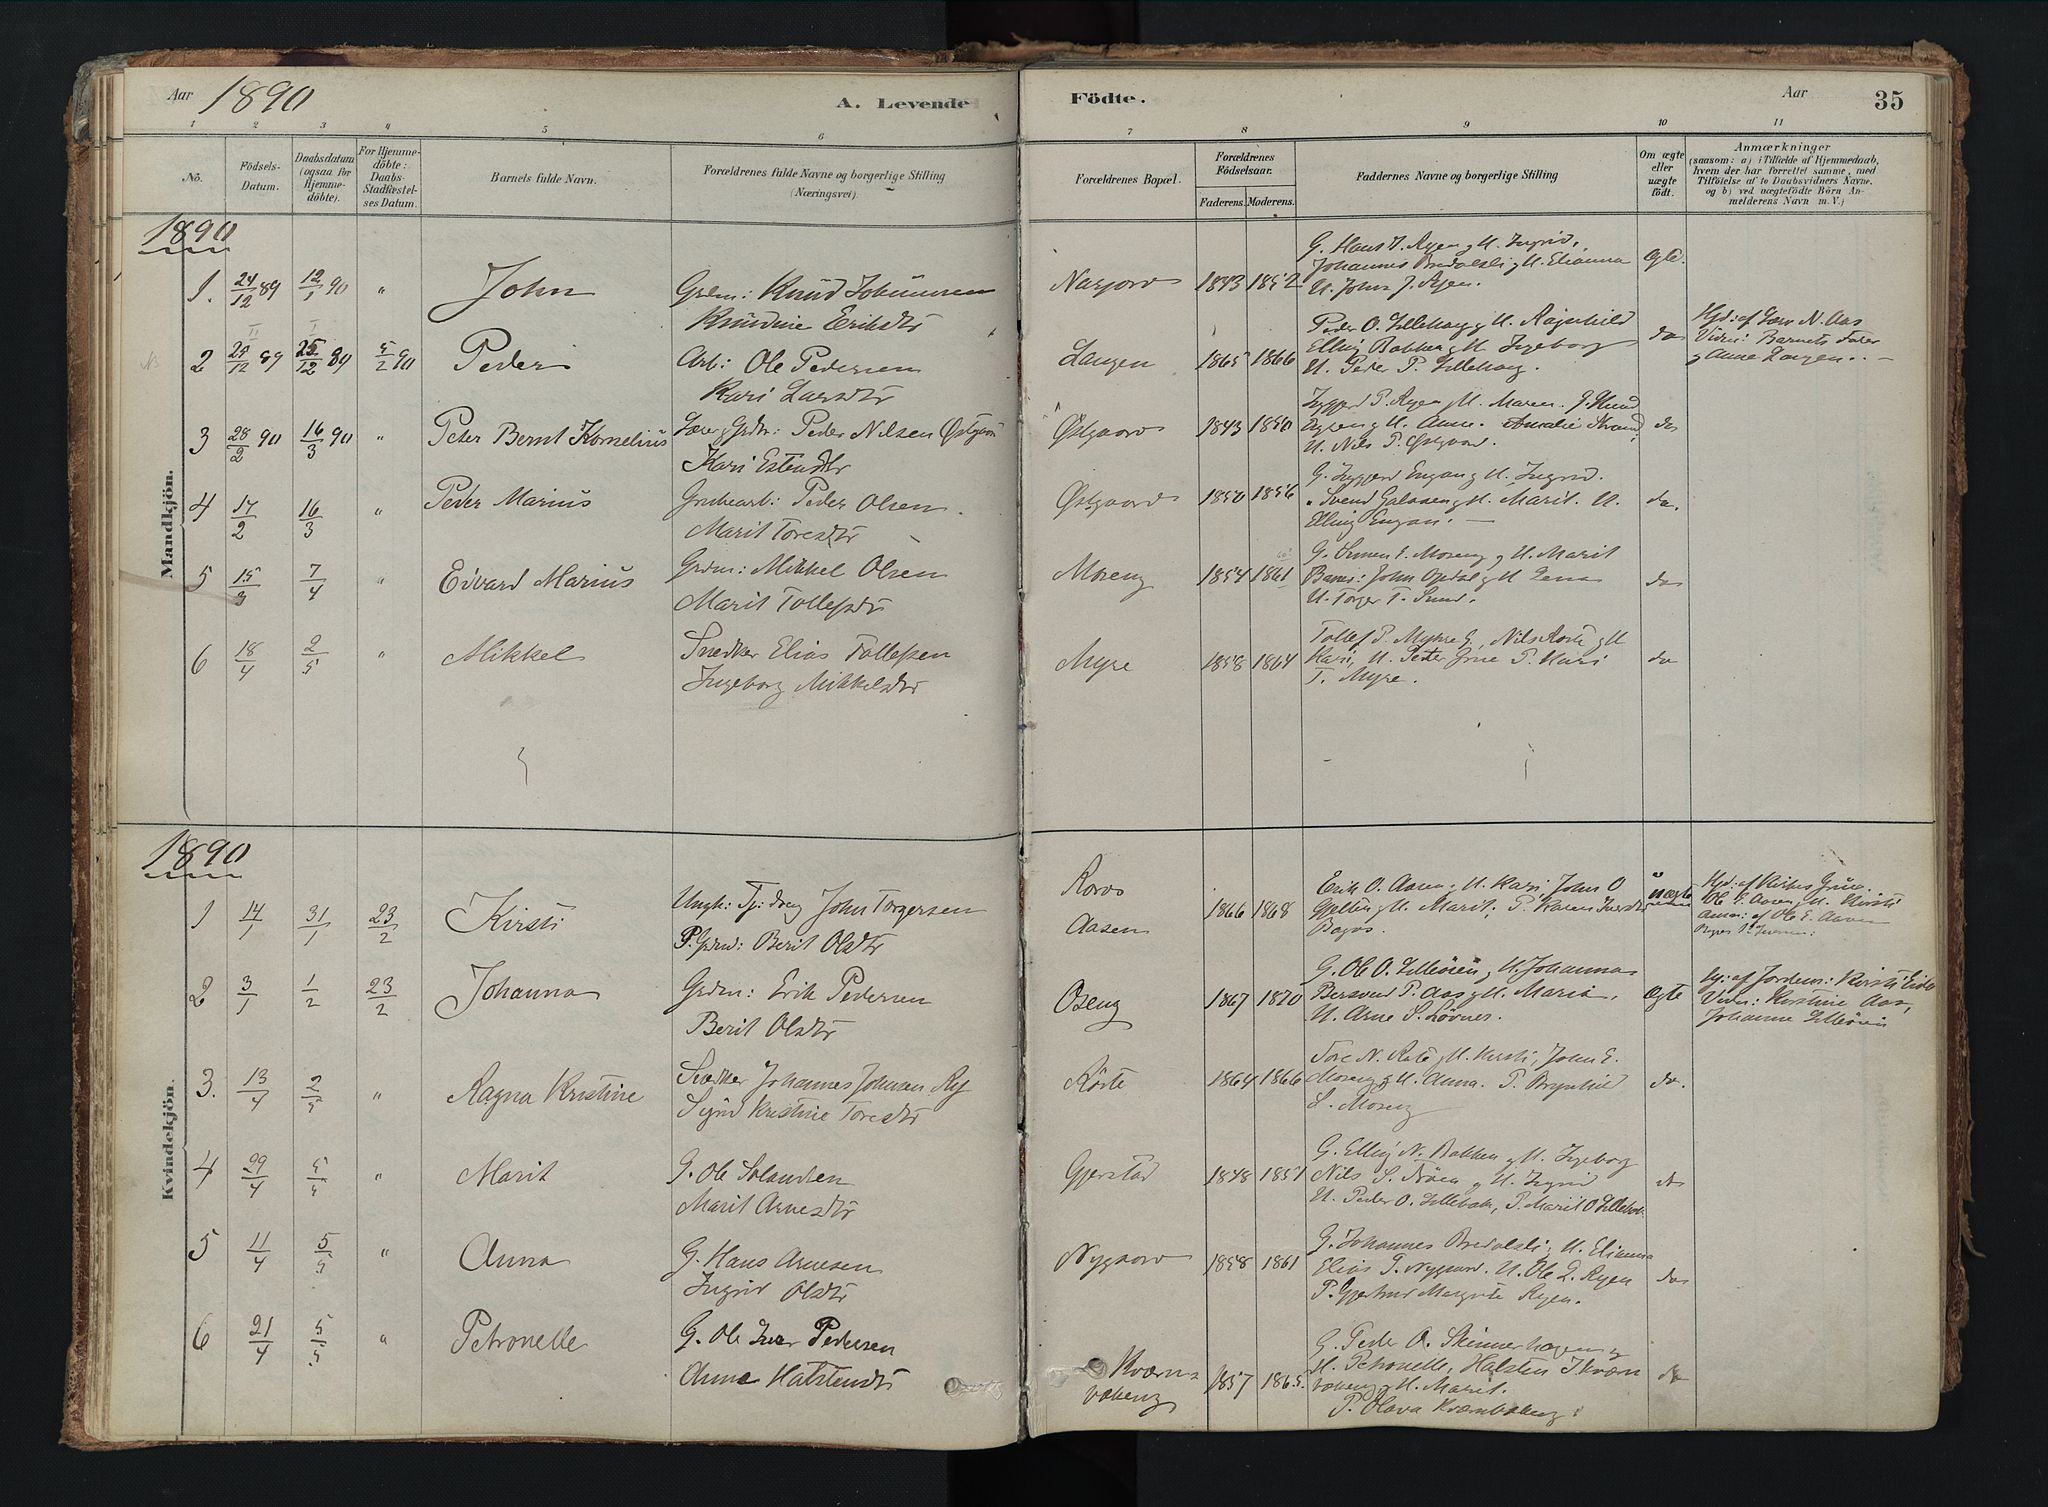 Aar 1890 A. Levende Födte. Aar 35
1 2 3 4 5 6 7 8 9 10 11
No. Födsels-Datum. Daabsdatum (ogsaa for Hjemmedöbte). For Hjemmedöbte: Daabs-Stadfæstelses Datum. Barnets fulde Navn. Forældrenes fulde Navne og borgerlige Stilling (Næringsvei). Forældrenes Bopæl. Forældrenes Födselsaar. Faderens. Moderens. Faddernes Navne og borgerlige Stilling Om ægte eller uægte födt. Anmærkninger (saasom: a) i Tilfælde af Hjemmedaab, hvem der har forrettet samme, med Tilföielse af to Daabsvidners Navne, og b) ved uægtefödte Börn Anmelderens Navn m. V.)
Mandkjön.
1890
G. Hans J. Ryen g H. Ingrid,
1. 24/12 89 12/1 90 " John Grdm: Knud Johnnsen Nasgaard 1843 1852 Johannes Bredalsli g H. Elianna Ægte.
Knudine Eriksdtr U. John J. Ryen.
Peder O. Lillehaug g H. Ragnhild Hjd: af Lærer N. Aas
2 25/12 89 25/12 89 5/2 90 Peder Arb: Ole Pedersen Langen 1865 1866 Elling Bakken g H. Ingeborg do Vidn: Barnets Fader
Kari Larsdtr U. Peder P. Lillehaug. g Anne Langen. –
Ingjerd P. Ryen g H. Maren.
3 28/2 90 16/3 90 " Peter Bernt Kornelius Lærer g Grdm: Peder Nilsen Østgaard Østgaard 1843 1850 g H. Anne. Amalie Strand, do
Kari Estensdtr U. Nils P. Østgaard.
G. Ingjerd Engan g H. Ingrid.
4 17/2 16/3 " Peder Marius Grubearb: Peder Olsen Østgaard 1850 1856 Svend Galaaen g H. Marit. U. do.
Marit Toresdtr Elling Engan. –
G. Simen E. Moreng g H. Marit
5 15/3 7/4 " Edvard Marius Grdm: Mikkel Olsen Moreng 1854 1861 John Opdal g H Lena do
Marit Tollefsdtr U. Torger T. Sund.
Tollef P. Myhre G., Nils Røste g H
6 18/4 2/5 " Mikkel Snedker Elias Tollefsen Myre 1858 1864 Kari, U. Peder P. Kari do
Ingeborg Mikkelsdtr T. Myre.
Kvindekjön.
1890
Ungk: Tj: dreng John Torgersen Røros Erik O. Aasen g H. Kari, John O uægte Hjd: af
1 14/1 31/1 23/2 Kirsti 1866 1868 Gjelten g H. Marit; P. Karen Ole E. Aasen g H. Kirsti
P. Grdm: Berit Olsdtr Aasen Anm: af Ole E. Aasen
G. Ole O. Lilleøien g H. Johanna Hj: af Jordem: Kirsti
2 3/1 1/2 23/2 Johanna Grdm: Erik Pedersen Oseng 1867 1870 Bersvend P. Aas g H. Marit, Ægte Vidn: Kirstine Aas,
Berit Olsdtr U. Arne S. Løvnes. Johanne Lilleøien
Tore N. Røste g H. Kirsti, John E.
3. 13/4 2/5 " Ragna Kristine Snedker Johannes Johnsen Ry Röste 1864 1866 Moreng g H. Anna. P. Brynhild do.
Sigrid Kristine Toresdtr L. Moreng
G. Elling N. Bakken g H. Ingeborg
4 29/4 5/5 " Marit G. Ole Iolandsen Gjerstad 1848 1851 Nils S. Trøen g H. Ingrid do
Marit Arnesdtr U. Peder O. Lillebak, P. Marit O Lillebak.
G. Johannes Bredalsli g H. Elianna
5 11/4 5/5 " Anna G. Hans Arnesen Nygaard 1858 1861 Elias P. Nygaard. U. Ole L. Ryen do
Ingrid Olsdtr P. Gjertrud Margrete Ryen.
G. Peder O. Skinnerhagen g
6 21/4 5/5 " Petronelle G. Ole Iver Pedersen Kværn- 1857 1865. H. Petronelle, Halsten I Kværn do
Anne Halstendtr bakeng bakeng g H. Marit.
P. Olava Kværnbakeng.